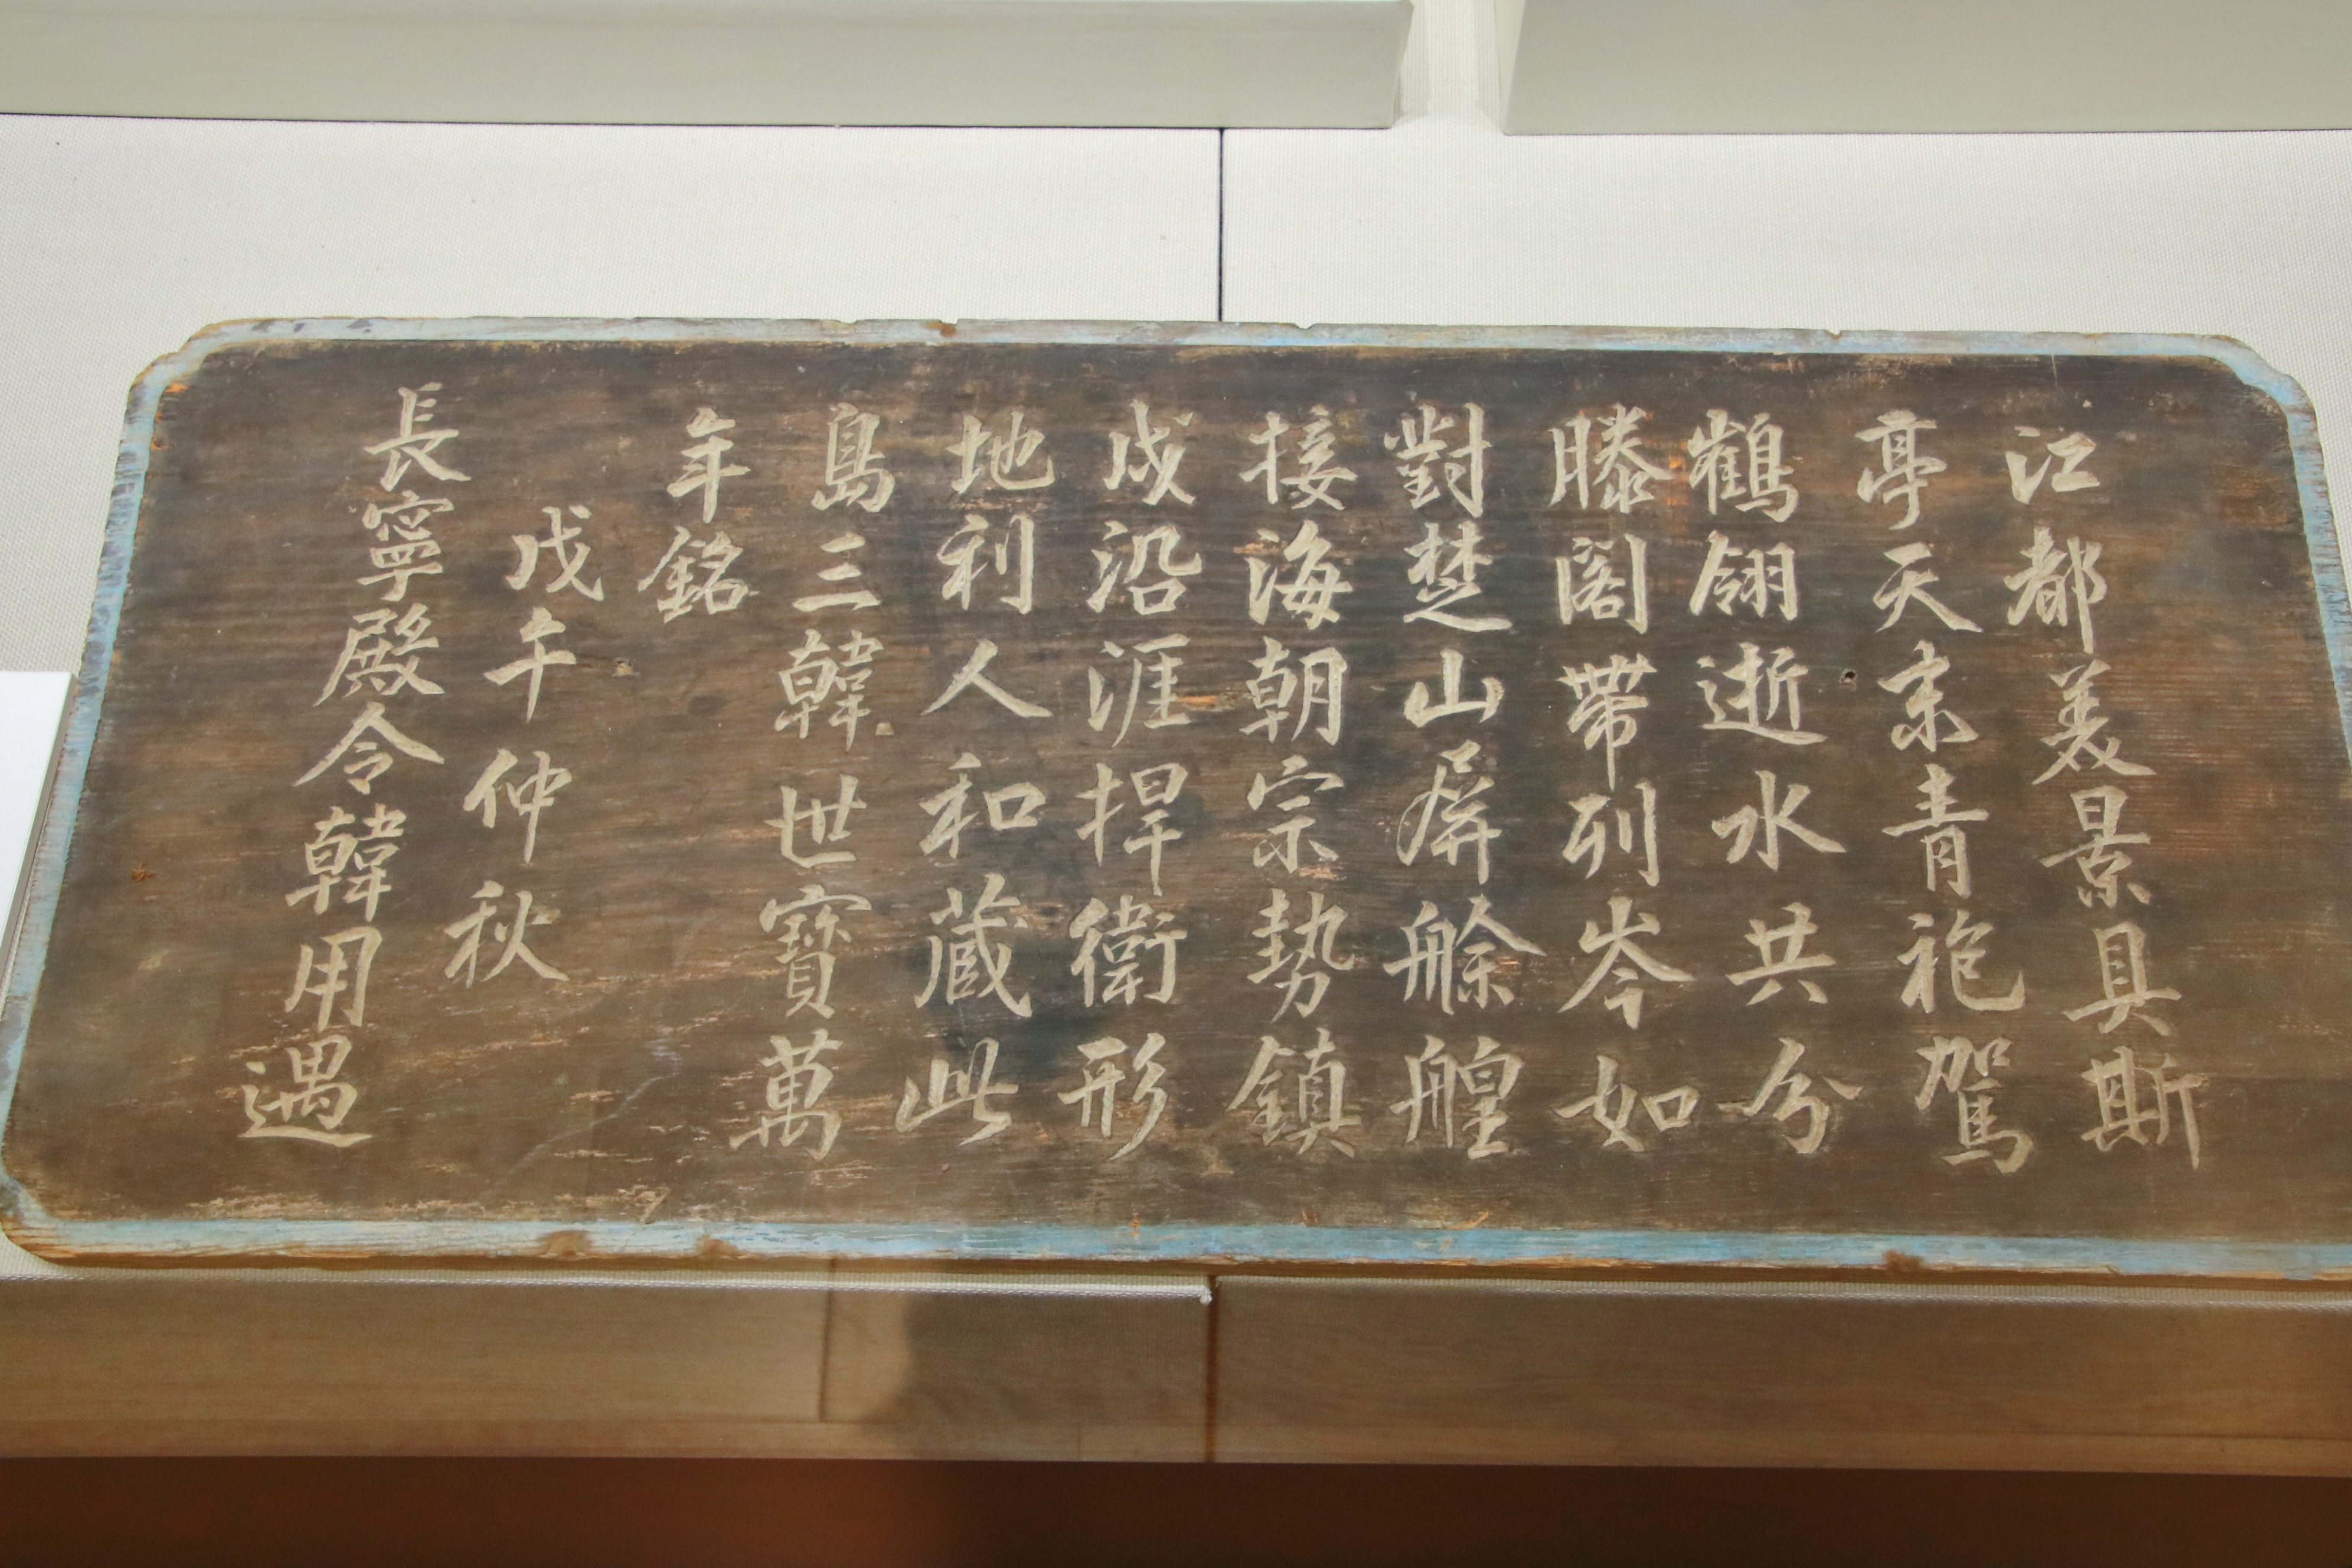 江都美景具斯
亭天京青袍駕
鶴翎逝水共分
滕閣帶列岑如
對楚山屏艅艎
接海朝宗勢鎮
戍沿涯捍衛形
地利人和藏此
島三韓世寶萬
年銘
戊午仲秋
長寧殿令韓用遇